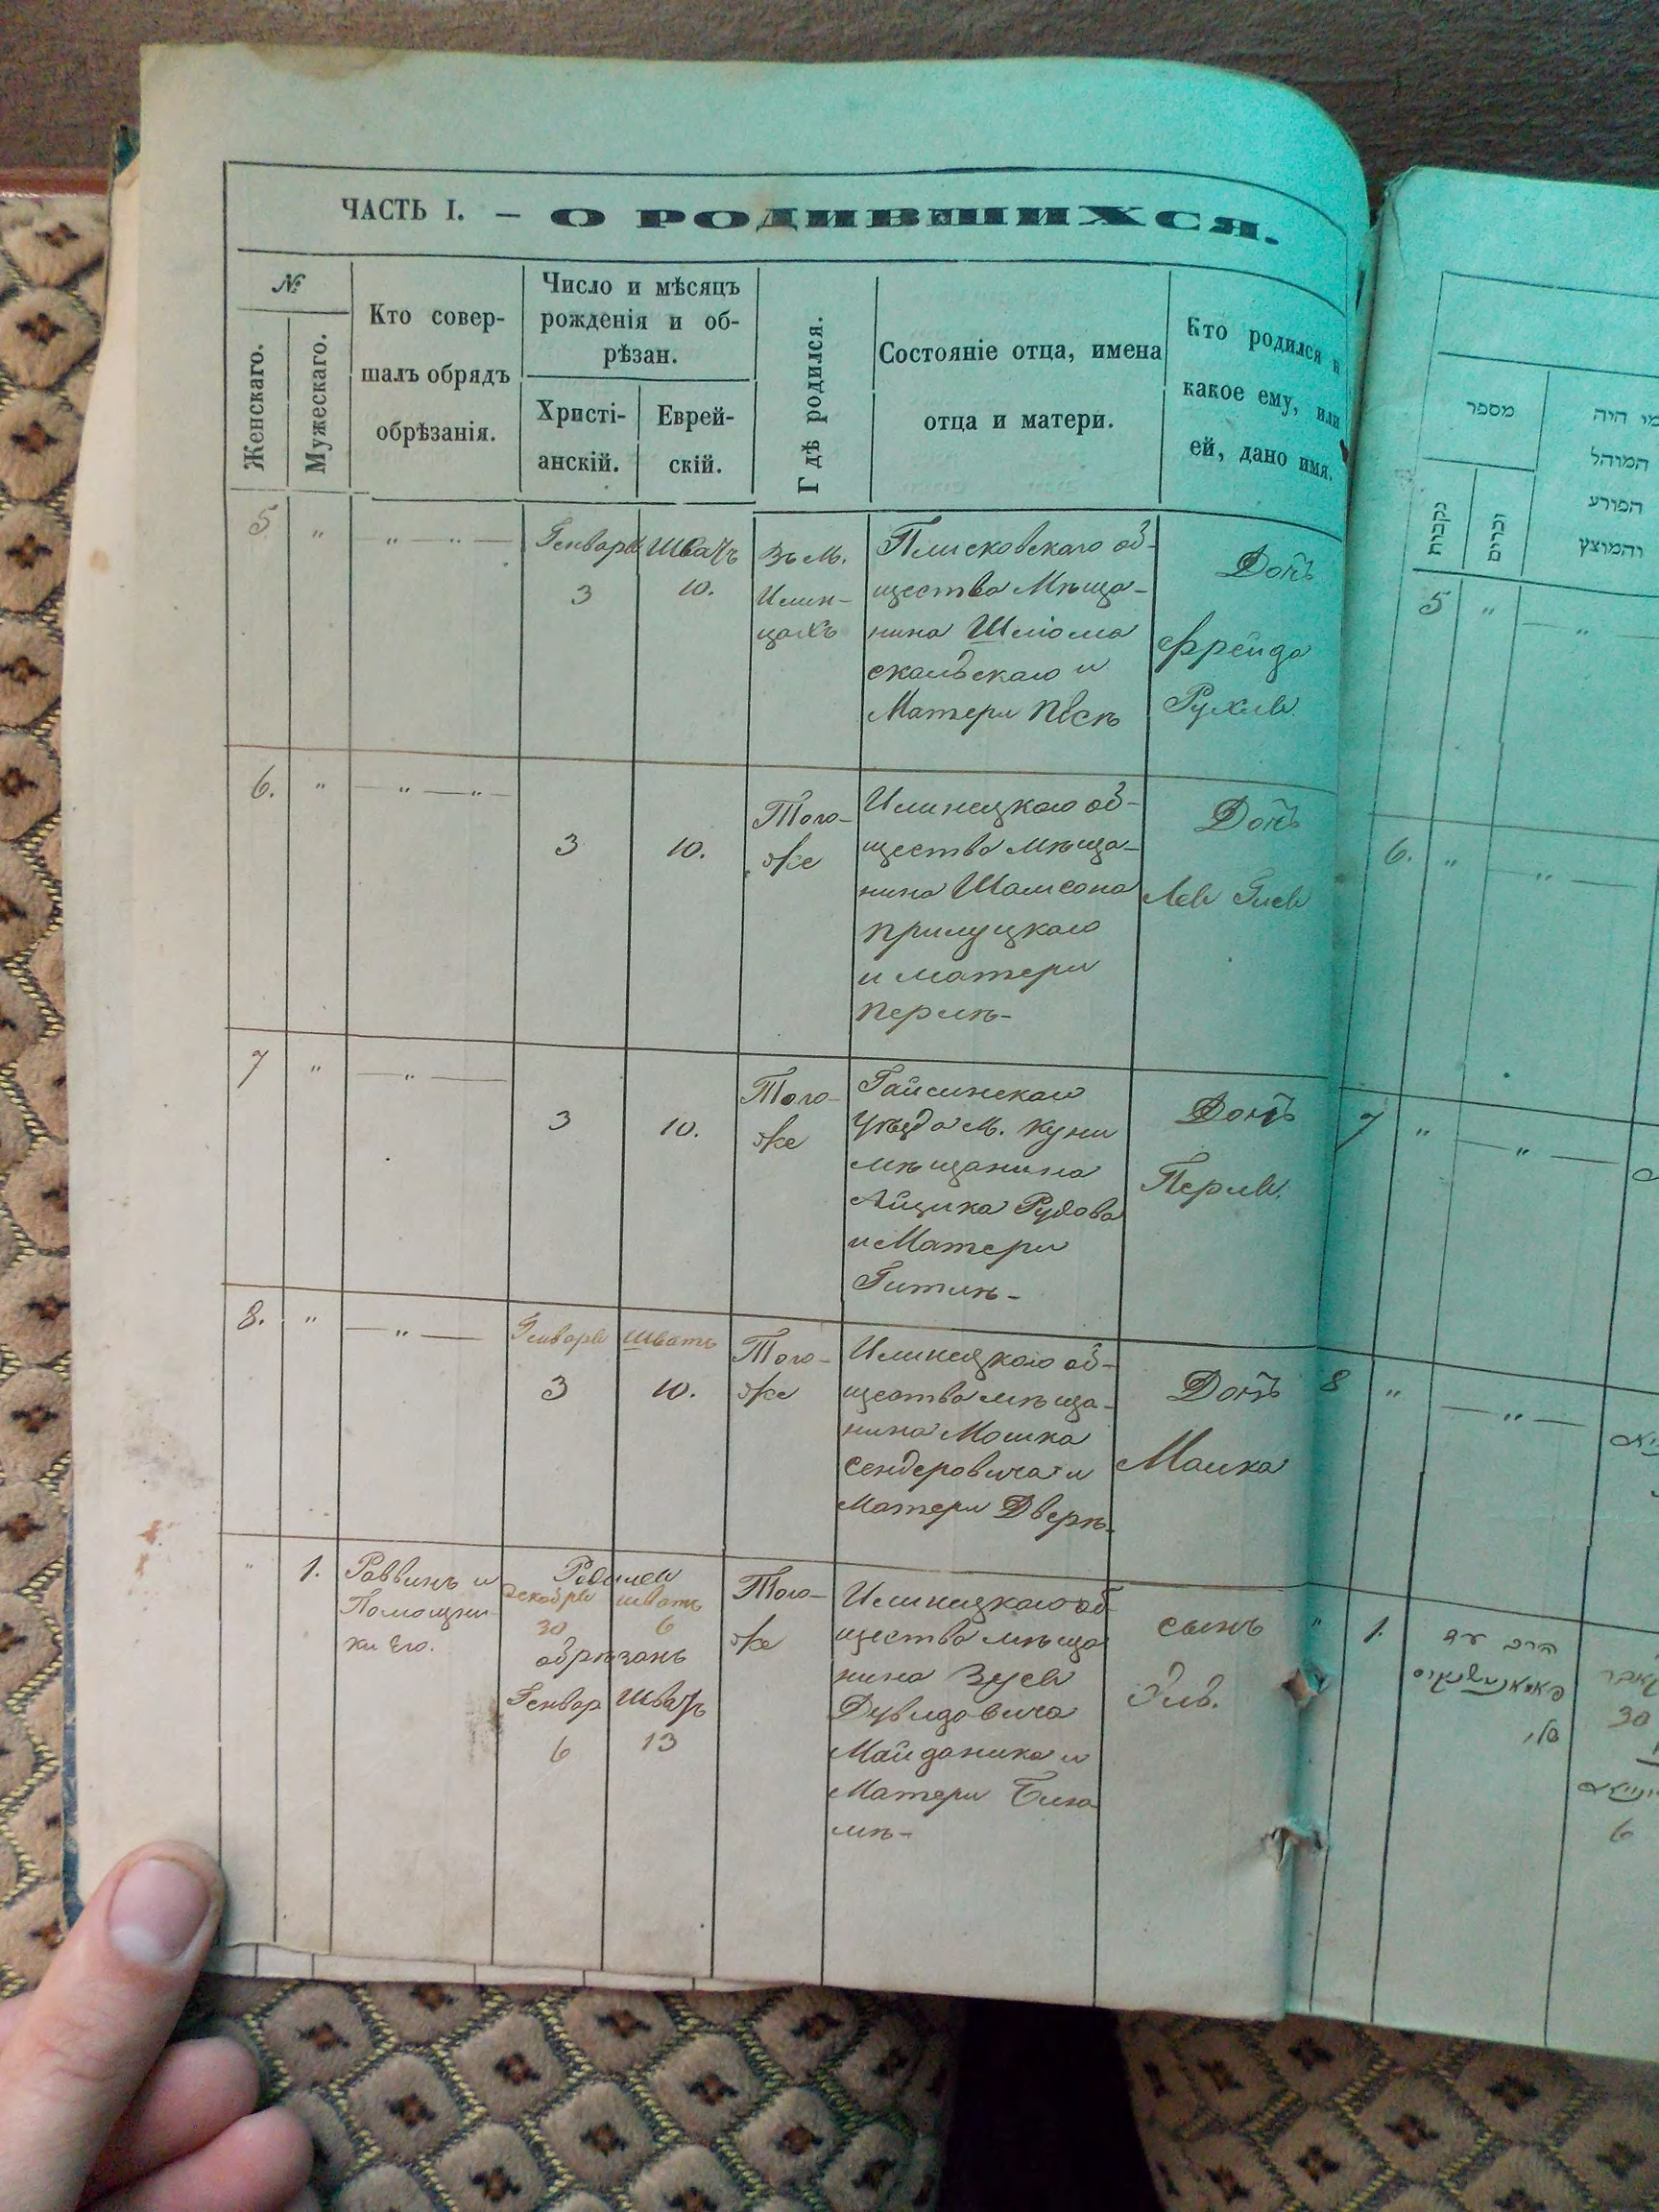 ЧАСТЬ I. – О РОДИВШИХСЯ.
№
Женскаго.
Мужескаго.
Кто совер-
шалъ обрядъ
обрѣзанія.
Число и мѣсяцъ
рожденія и об-
рѣзан.
Христі-
анскій.
Еврей-
скій.
Гдѣ родился.
Состояніе отца, имена
отца и матери.
Кто родился и
какое ему, или
ей, дано имя.
5 " — " — " —
Генваря
3
Шватъ
10.
Въ м.
Илин-
цахъ
Плисковскаго об-
щества мѣща-
нина Шлiома
скальскаго и
Матери Песѣ
Дочь
Фрейда
Рухля
6. " — " — " —
3
10.
Того-
же
Илинецкаго об-
щества мѣща-
нина Шамсона
прилуцкаго
и матери
перлѣ-
Дочь
Лея
7 " — " —
3
10.
Того-
же
Гайсинскаго
Уѣзда м. Куни
мѣщанина
Айзика
и Матери
Гитлѣ-
Дочь
Перля.
8. " — " —
Генваря
3
шватъ
10.
Того-
же
Илинецкаго об-
щества мѣща-
нина Мошка
сендеровича и
матери Дверѣ-
Дочь
Малка
" 1.
Раввинъ и
Помощни-
ки Его.
Родился
Декабря шватъ
30 6
обрѣзанъ
Генвар Шватъ
6 13
Того-
же
Илинецкаго об-
щества мѣща
нина Зуся
Дувидовича
Майданика и
Матери
сынъ
מספר
נקבות
זכרים
מי היה
המוהל
הפורע
והמוצץ
5 "
6. " — " —
7 " — " —
8 " — " —
" 1.
הרב
30
6